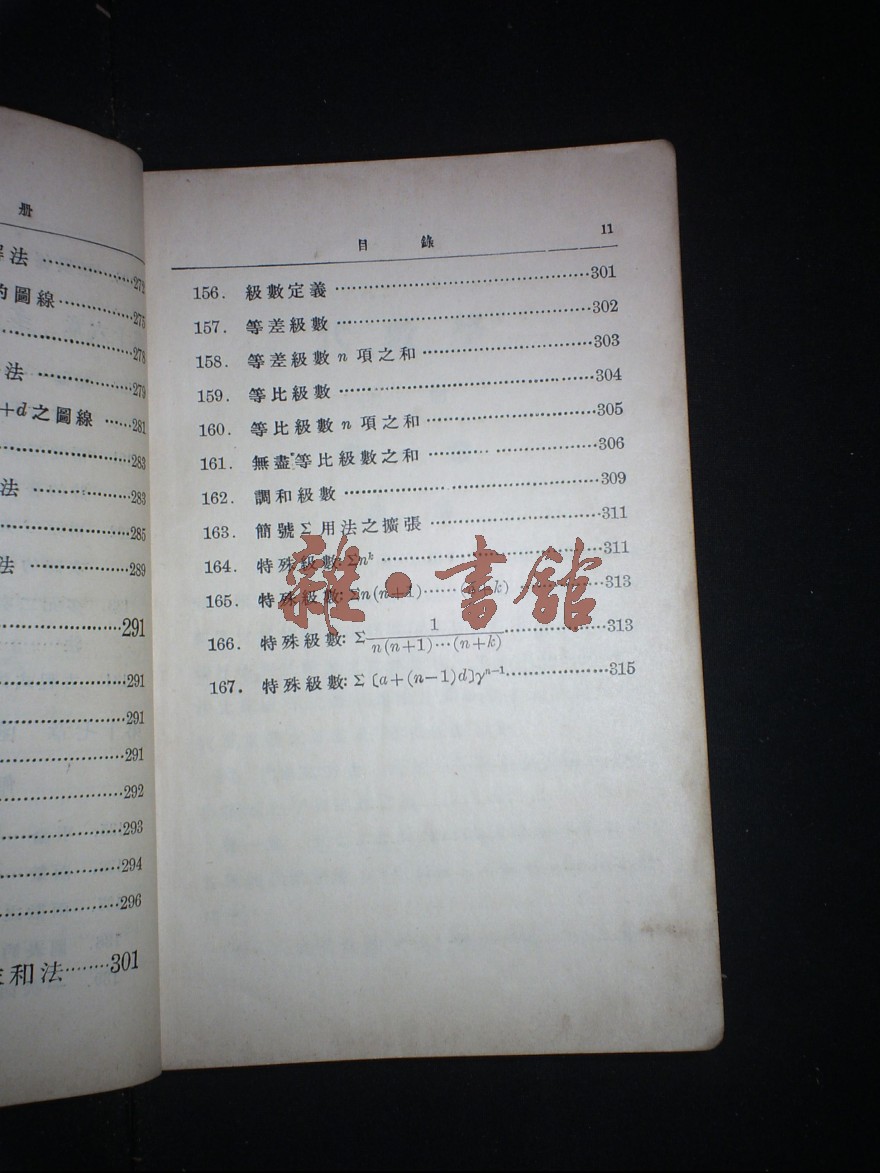 册
解法 ……272
的圖線 ……275
……278
法 ……279
+d之圖線 ……281
……283
法 ……283
……285
法 ……289
……291
……291
……291
……291
……292
……293
……294
……296
和法 ……301
目 錄 11
156. 級數定義 ……301
157. 等差級數 ……302
158. 等差級數 n 項之和 ……303
159. 等比級數 ……304
160. 等比級數 n 項之和 ……305
161. 無盡等比級數之和 ……306
162. 調和級數 ……309
163. 簡號 Σ 用法之擴張 ……311
164. 特殊級數: Σnᵏ ……311
165. 特殊級數: Σn(n+1)……(n+k) ……313
166. 特殊級數: Σ 1/n(n+1)…(n+k) ……313
167. 特殊級數: Σ〔a+(n−1)d〕γⁿ⁻¹ ……315
雜·書館